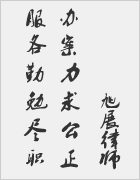 办案力求公正
服各勤勉尽职
旭展律师